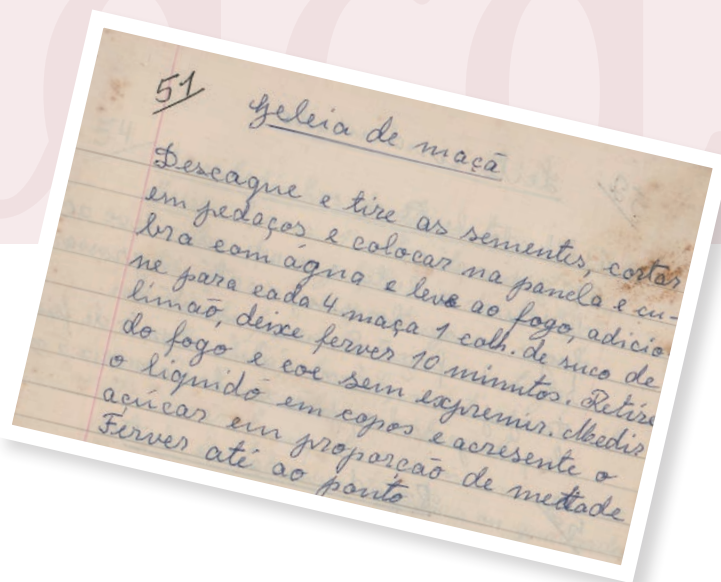 51
Geleia de maçã
Descaque e tire as sementes, cortar
em pedaços e colocar na panela e cu-
bra com água e leve ao fogo, adicio
ne para cada 4 maça 1 colh. de suco de
limão, deixe ferver 10 minutos. Retire
do fogo e coe sem expremir. Medir
o liquido em copos e acresente o
açúcar em proporção de metade
Ferver até ao ponto